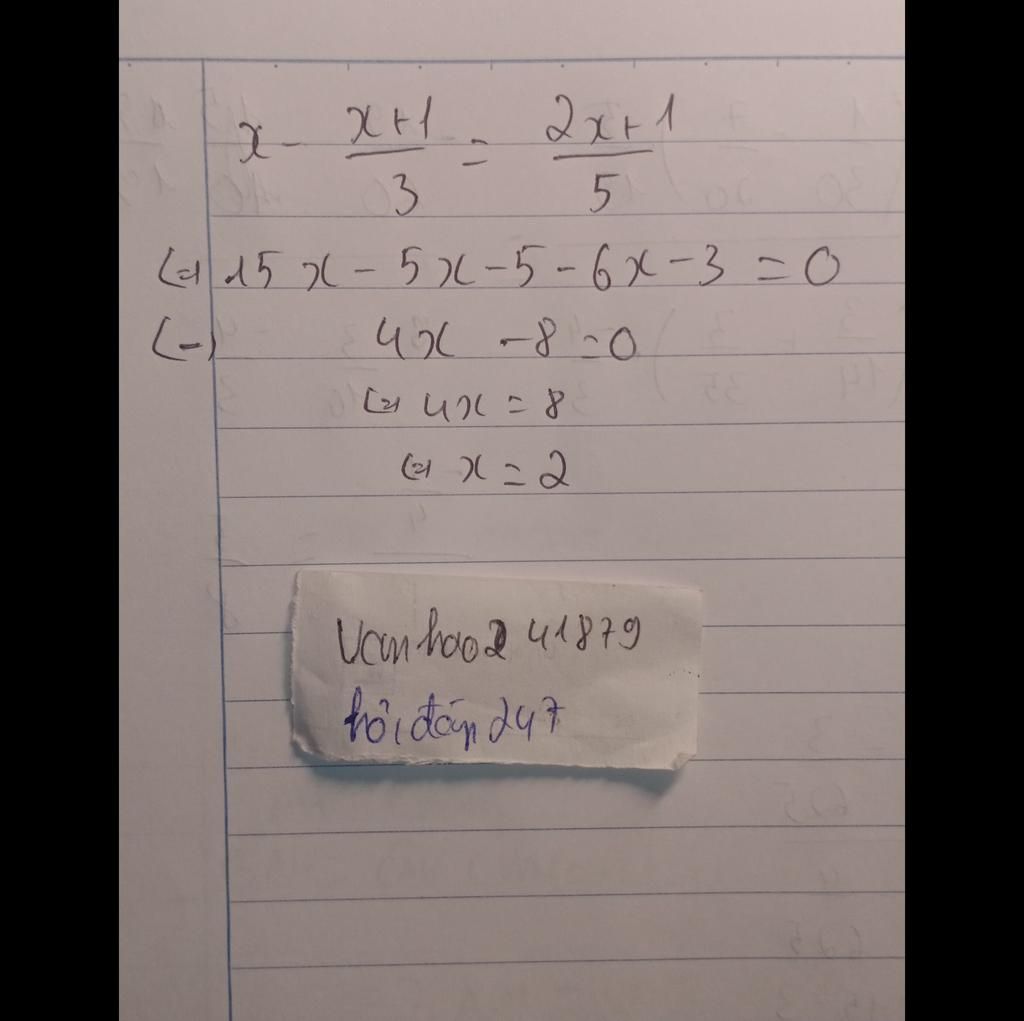 x - \frac{x+1}{3} = \frac{2x+1}{5}
<=> 15x - 5x - 5 - 6x - 3 = 0
(-) 4x - 8 = 0
<=> 4x = 8
<=> x = 2
Vanhao2 41879
hỏi đáp 247